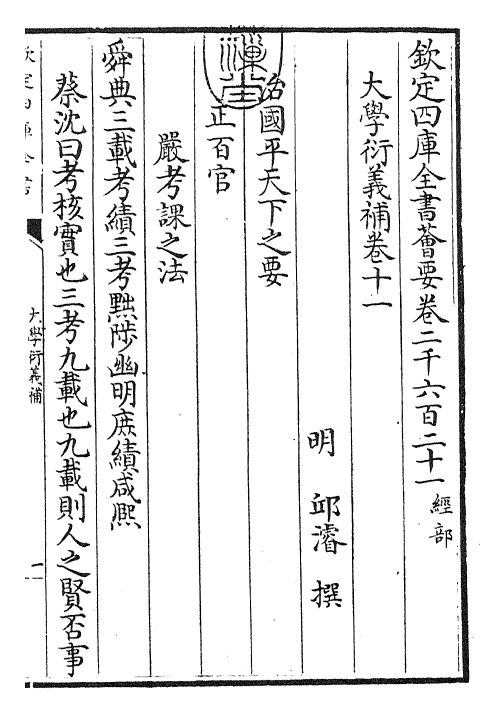 欽定四庫全書薈要卷二千六百二十一 經部
大學衍義補卷十一
明 邱濬 撰
治國平天下之要
正百官
嚴考課之法
舜典三載考績三考黜陟幽明庶績咸熙
蔡沈曰考核實也三考九載也九載則人之賢否事
大學衍義補
一